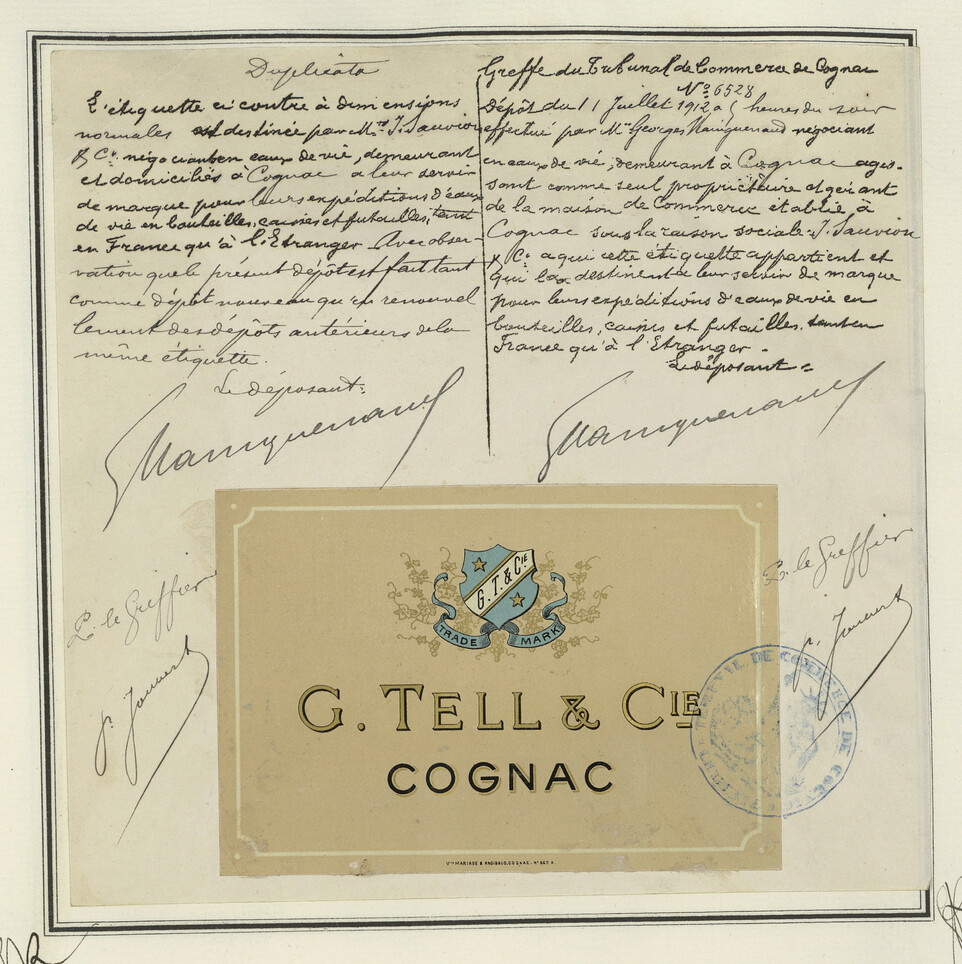 Duplicata
L'étiquette ci contre à dimensions
normales est destinée par Mrs J. Sauvion
& Cie négociants en eaux de vie, demeurant
et domiciliés à Cognac a leur servir
de marque pour leurs expéditions d'eaux
de vie en bouteilles, caisses et futailles, tant
en France qu'à l'Etranger Avec obser-
vation que le présent dépôt est fait tant
comme dépôt nouveau qu'en renouvel
lement des dépôts antérieurs de la
même étiquette.
Le déposant:
GMainguenaud
P. le Greffier
Greffe du Tribunal de Commerce de Cognac
No 6528
Dépôt du 11 Juillet 1912 a heures du soir
effectué par Mr Georges Mainguenaud négociant
en eaux de vie, demeurant à Cognac agis-
sant comme seul propriétaire et gérant
de la maison de Commerce établie à
Cognac sous la raison sociale J. Sauvion
& Cie a qui cette étiquette appartient et
qui la destinent a leur servir de marque
pour leurs expéditions d'eaux de vie en
bouteilles, caisses et futailles, tant en
France qu'à l'Etranger.
Le déposant =
GMainguenaud
P. le Greffier
G.T. & CIE
TRADE MARK
G. TELL & CIE
COGNAC
TRIBUNAL DE COMMERCE DE COGNAC